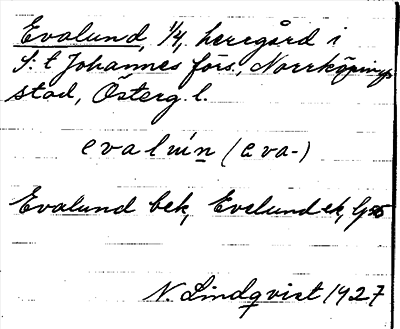 Evalund, 1/4, herrgård i
S:t Johannes förs., Norrköpings
stad, Österg. l.
evaluin (eva-)
Evalund bek, Evelund ek,
N. Lindqvist 1927